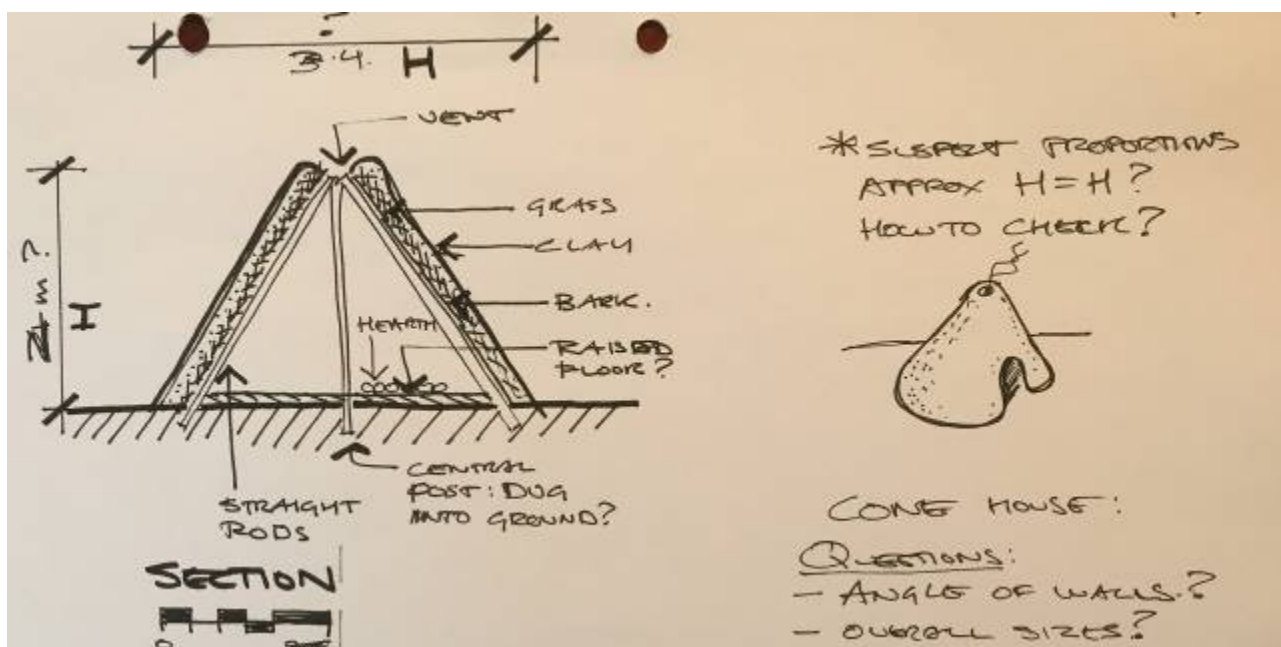 ?
3.4. H
VENT
GRASS
CLAY
BARK.
HEARTH
RAISED
FLOOR?
m?
H
STRAIGHT
RODS
CENTRAL
POST: DUG
INTO GROUND?
SECTION
0
*SUSPECT PROPORTIONS
APPROX H=H?
HOW TO CHECK?
CONE HOUSE:
QUESTIONS:
- ANGLE OF WALLS.?
- OVERALL SIZES?